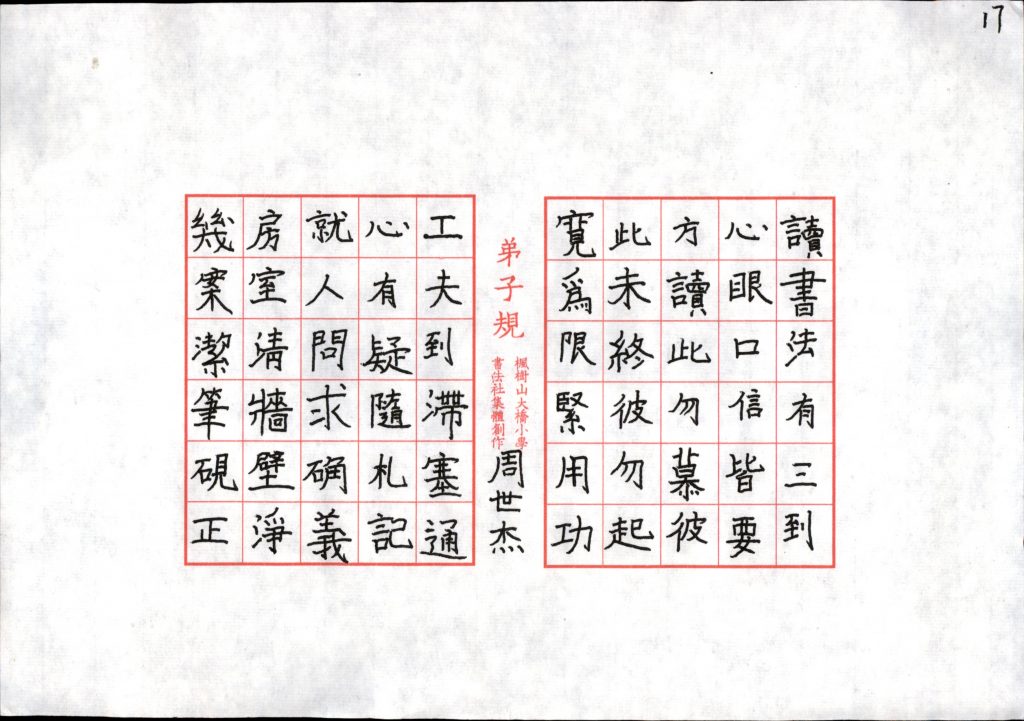 17
讀書法有三到
心眼口信皆要
方讀此勿慕彼
此未終彼勿起
寛爲限緊用功
弟子規
楓樹山大橋小學
書法社集體創作
周世杰
工夫到滯塞通
心有疑隨札記
就人問求确義
房室清牆壁淨
幾案潔筆硯正